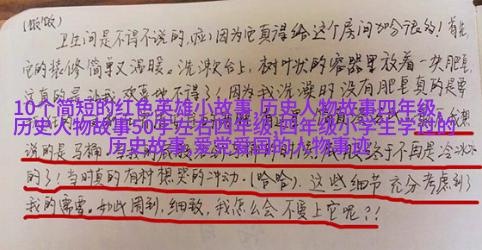 (嗷嗷)
卫生间是不得不说的,啦!因为它真得给这个房间加分很多!首先
它的装修简单又温暖。洗漱台上,树叶状的容器里放着一块肥皂,
这真的是让我欢喜地不得了!因为我洗澡时没有肥皂真的是
10个简短的红色英雄小故事,历史人物故事四年级,
历史人物故事50字左右四年级,四年级小学生学过的
历史故事,爱党爱国的人物事迹
说的是马桶
终于不再是冷冰冰
的了!当时真的有村想哭的冲动,(哈哈)。这些细节充分考虑到了
我的需要。如此周到,细致,我怎么会不爱上它呢?!